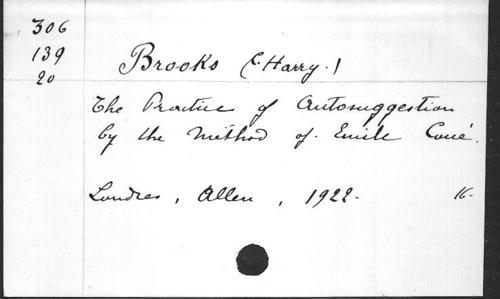 306
139
20
Brooks (C. Harry.)
The Practice of Autosuggestion
by the Method of. Emile Coué.
Londres, Allen, 1922. 16-